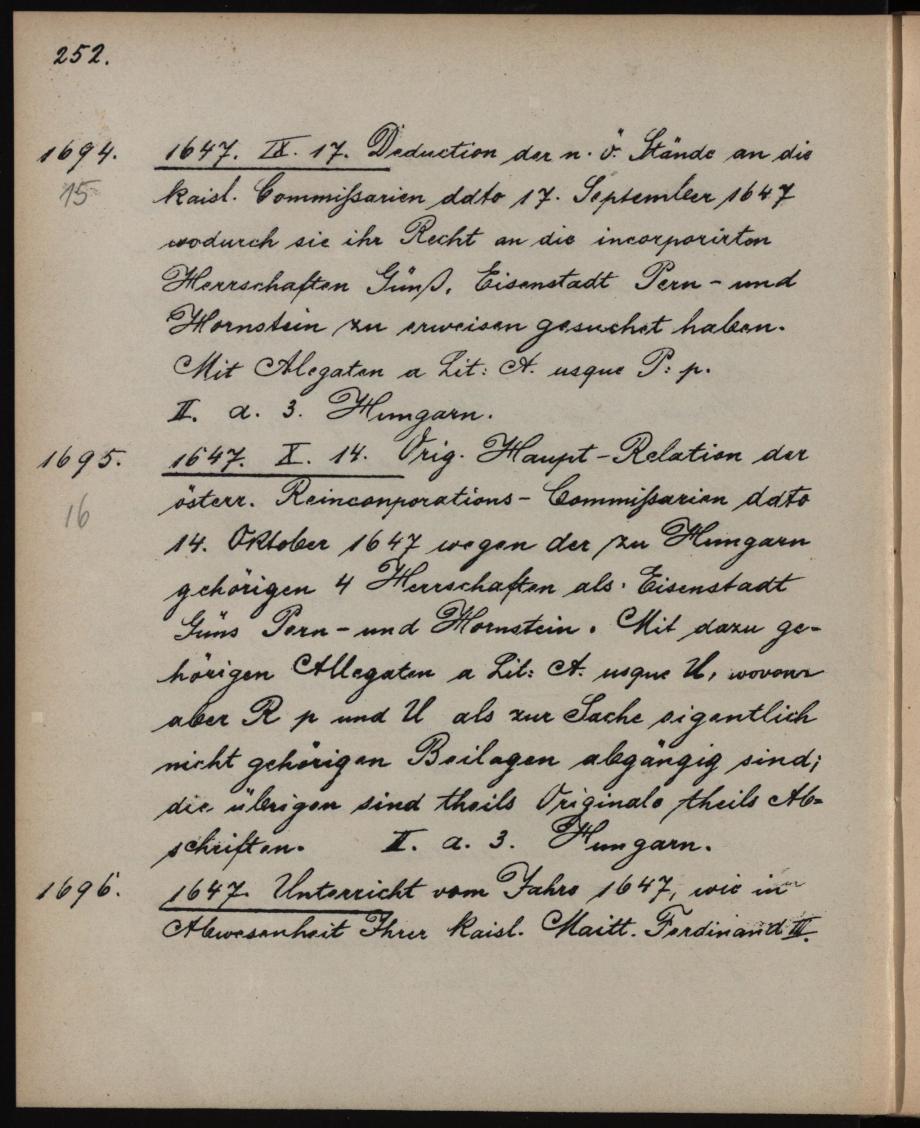 252.
1694. 1647. IX. 17. Deduction der n. ö. Stände an die
15 kaisl. Commißarien ddto 17. September 1647
wodurch sie ihr Recht an die incorporirten
Herrschaften Günß, Eisenstadt Pern- und
Hornstein zu erweisen gesuchet haben.
Mit Alegaten a Lit: A. usque P: p.
II. a. 3. Hungarn.
1695. 1647. X. 14. Orig. Haupt-Relation der
österr. Reinconporations-Commißarien ddto
16
14. Oktober 1647 wegen der zu Hungarn
gehörigen 4 Herrschaften als. Eisenstadt
Güns Pern- und Hornstein. Mit dazu ge-
hörigen Allegaten a Lit: A. usque U, wovon
aber R p und U als zur Sache eigentlich
nicht gehörigen Beilagen abgängig sind;
die übrigen sind theils Originale theils Ab-
schriften. II. a. 3. Hungarn.
1696. 1647. Unterricht vom Jahre 1647, wie in
Abwesenheit Ihrer kaisl. Maitt. Ferdinand III.